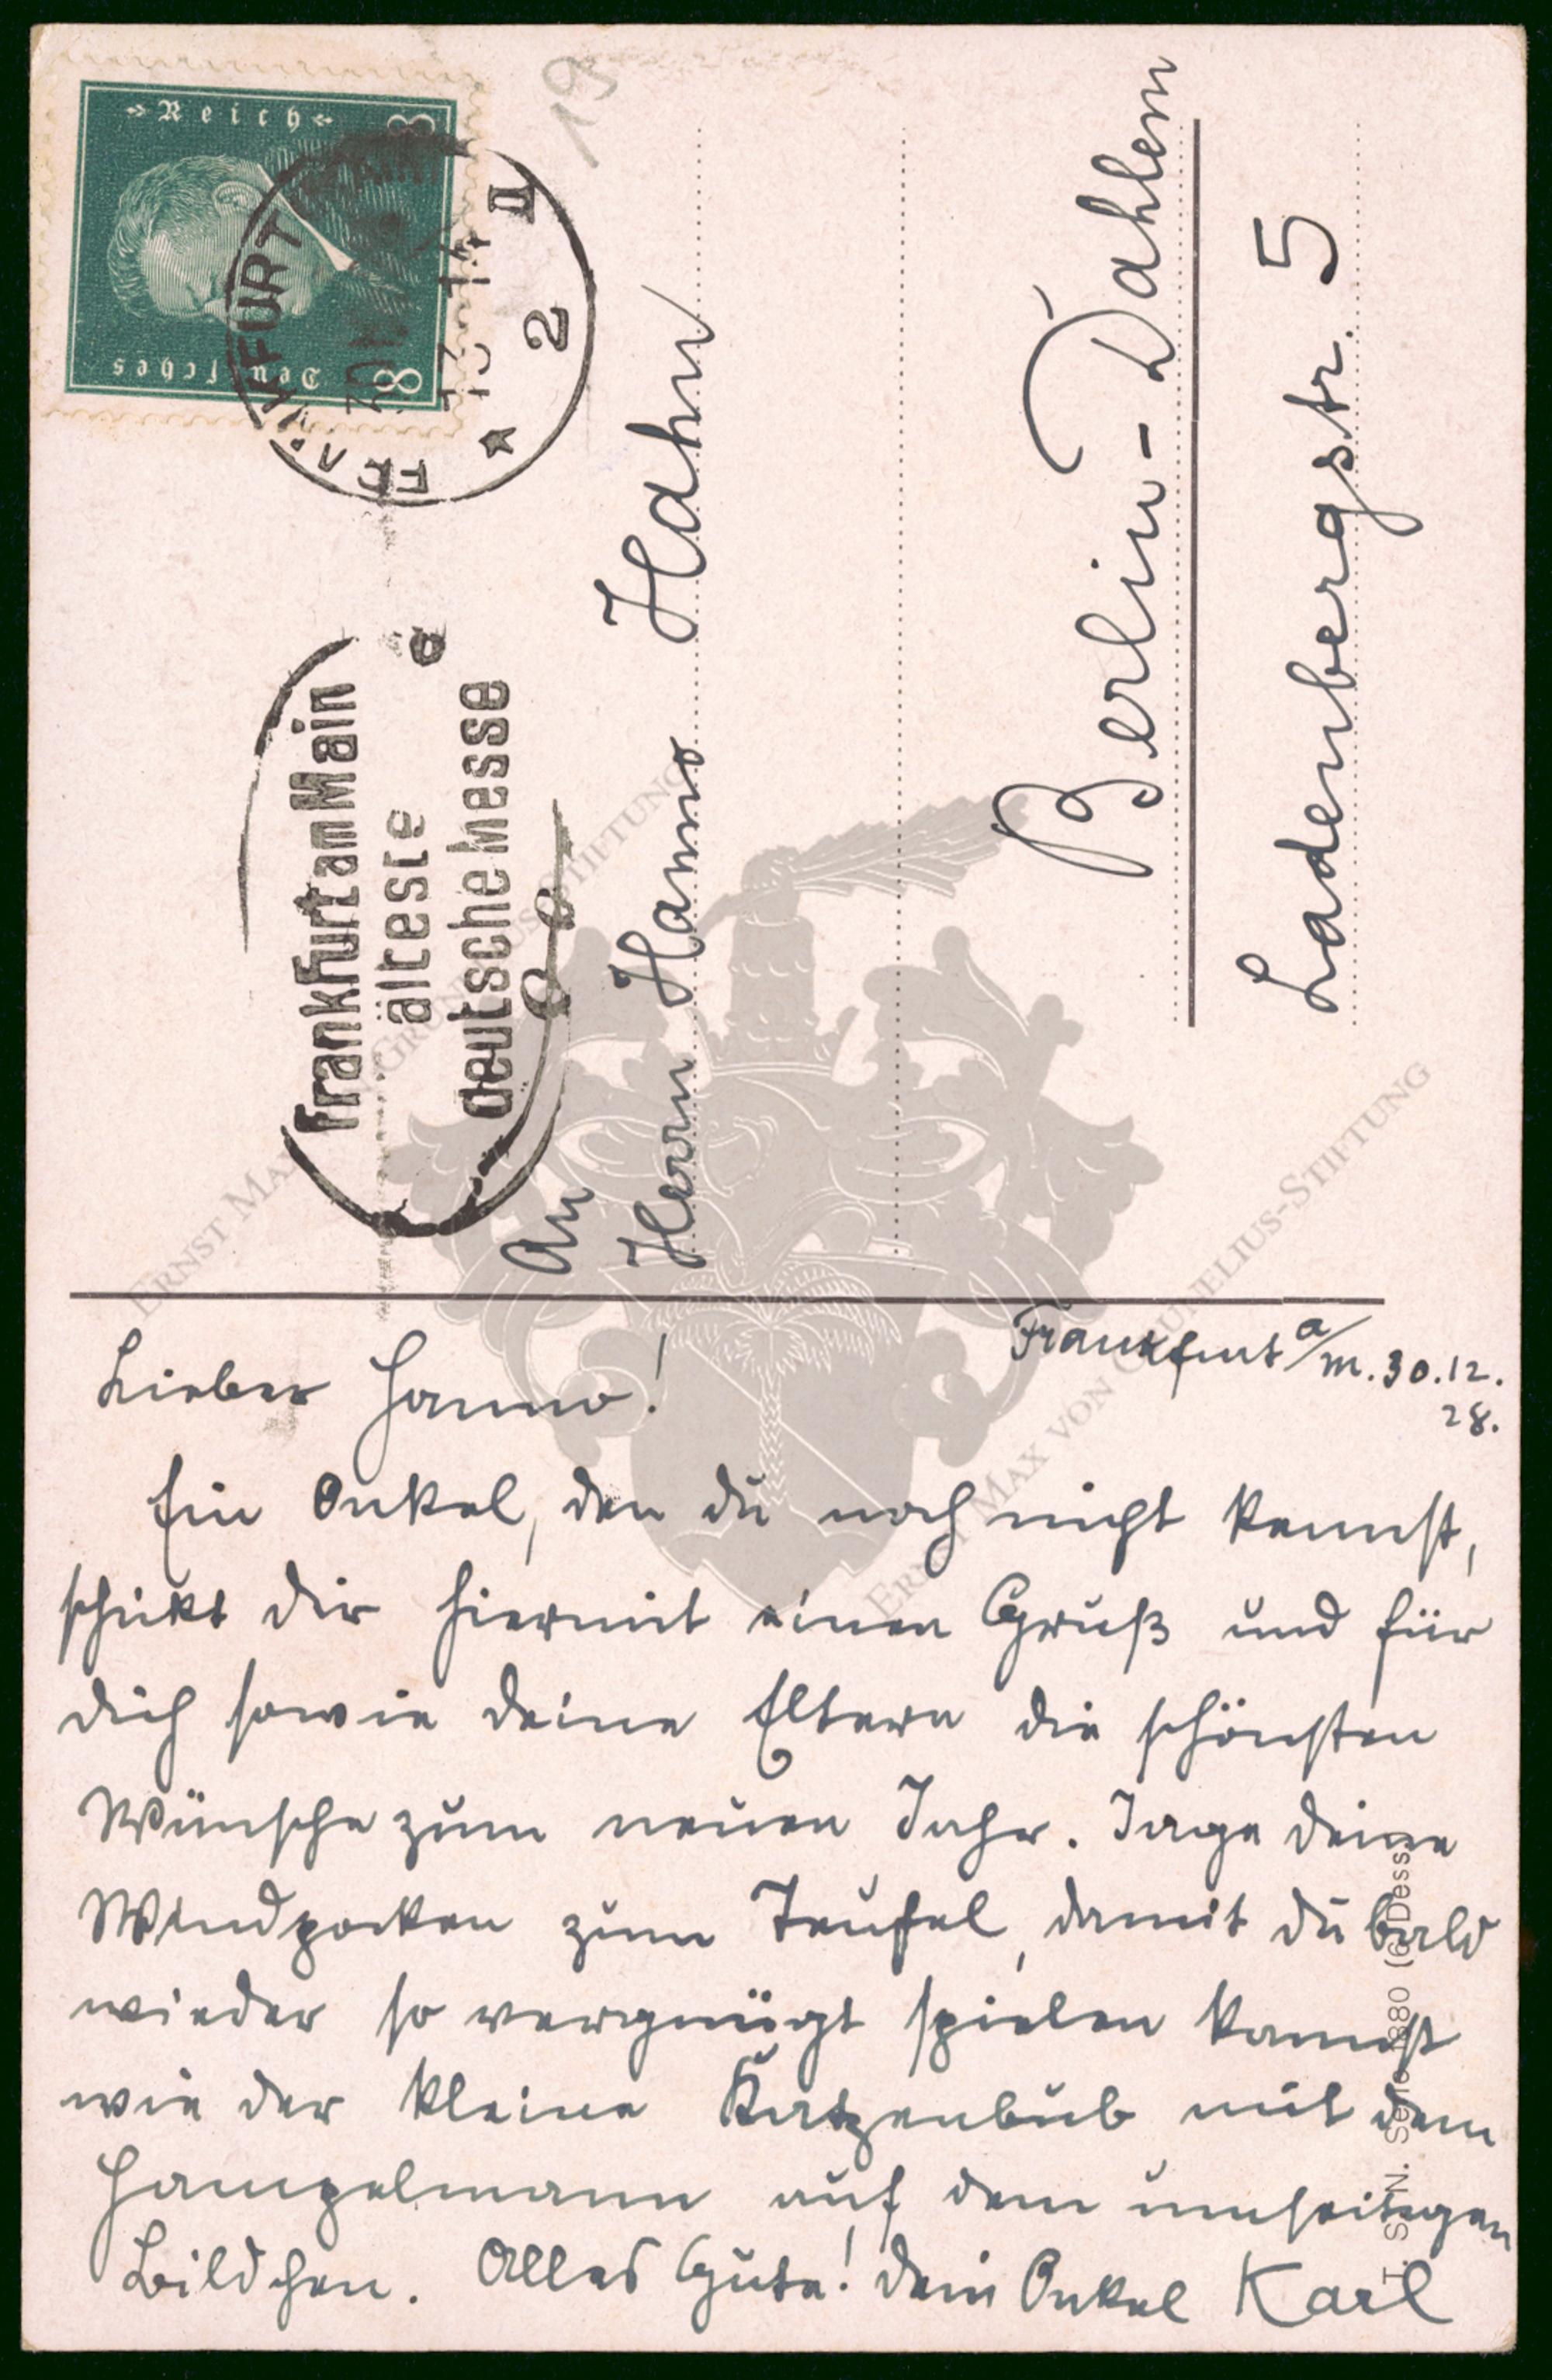 Deutsches Reich
8 8
FRANKFURT
30.12
13-14
2
II
19
Frankfurt am Main
älteste
deutsche Messe
An
Herrn Hanno Hahn
Berlin-Dahlem
Ladenbergstr. 5
Frankfurt a/M. 30.12.
28.
Lieber Hanno!
Ein Onkel, den du noch nicht kennst,
schickt dir hiermit einen Gruß und für
dich sowie deine Eltern die schönsten
Wünsche zum neuen Jahr. Jage deine
Windpocken zum Teufel, damit du bald
wieder so vergnügt spielen kannst
wie der kleine Katzenbub mit dem
Hampelmann auf dem umseitigen
Bildchen. Alles Gute! Dein Onkel Karl
T. S. N. Serie 1880 (6 Dess.)
ERNST MAX VON GRUNELIUS-STIFTUNG
ERNST MAX VON GRUNELIUS-STIFTUNG